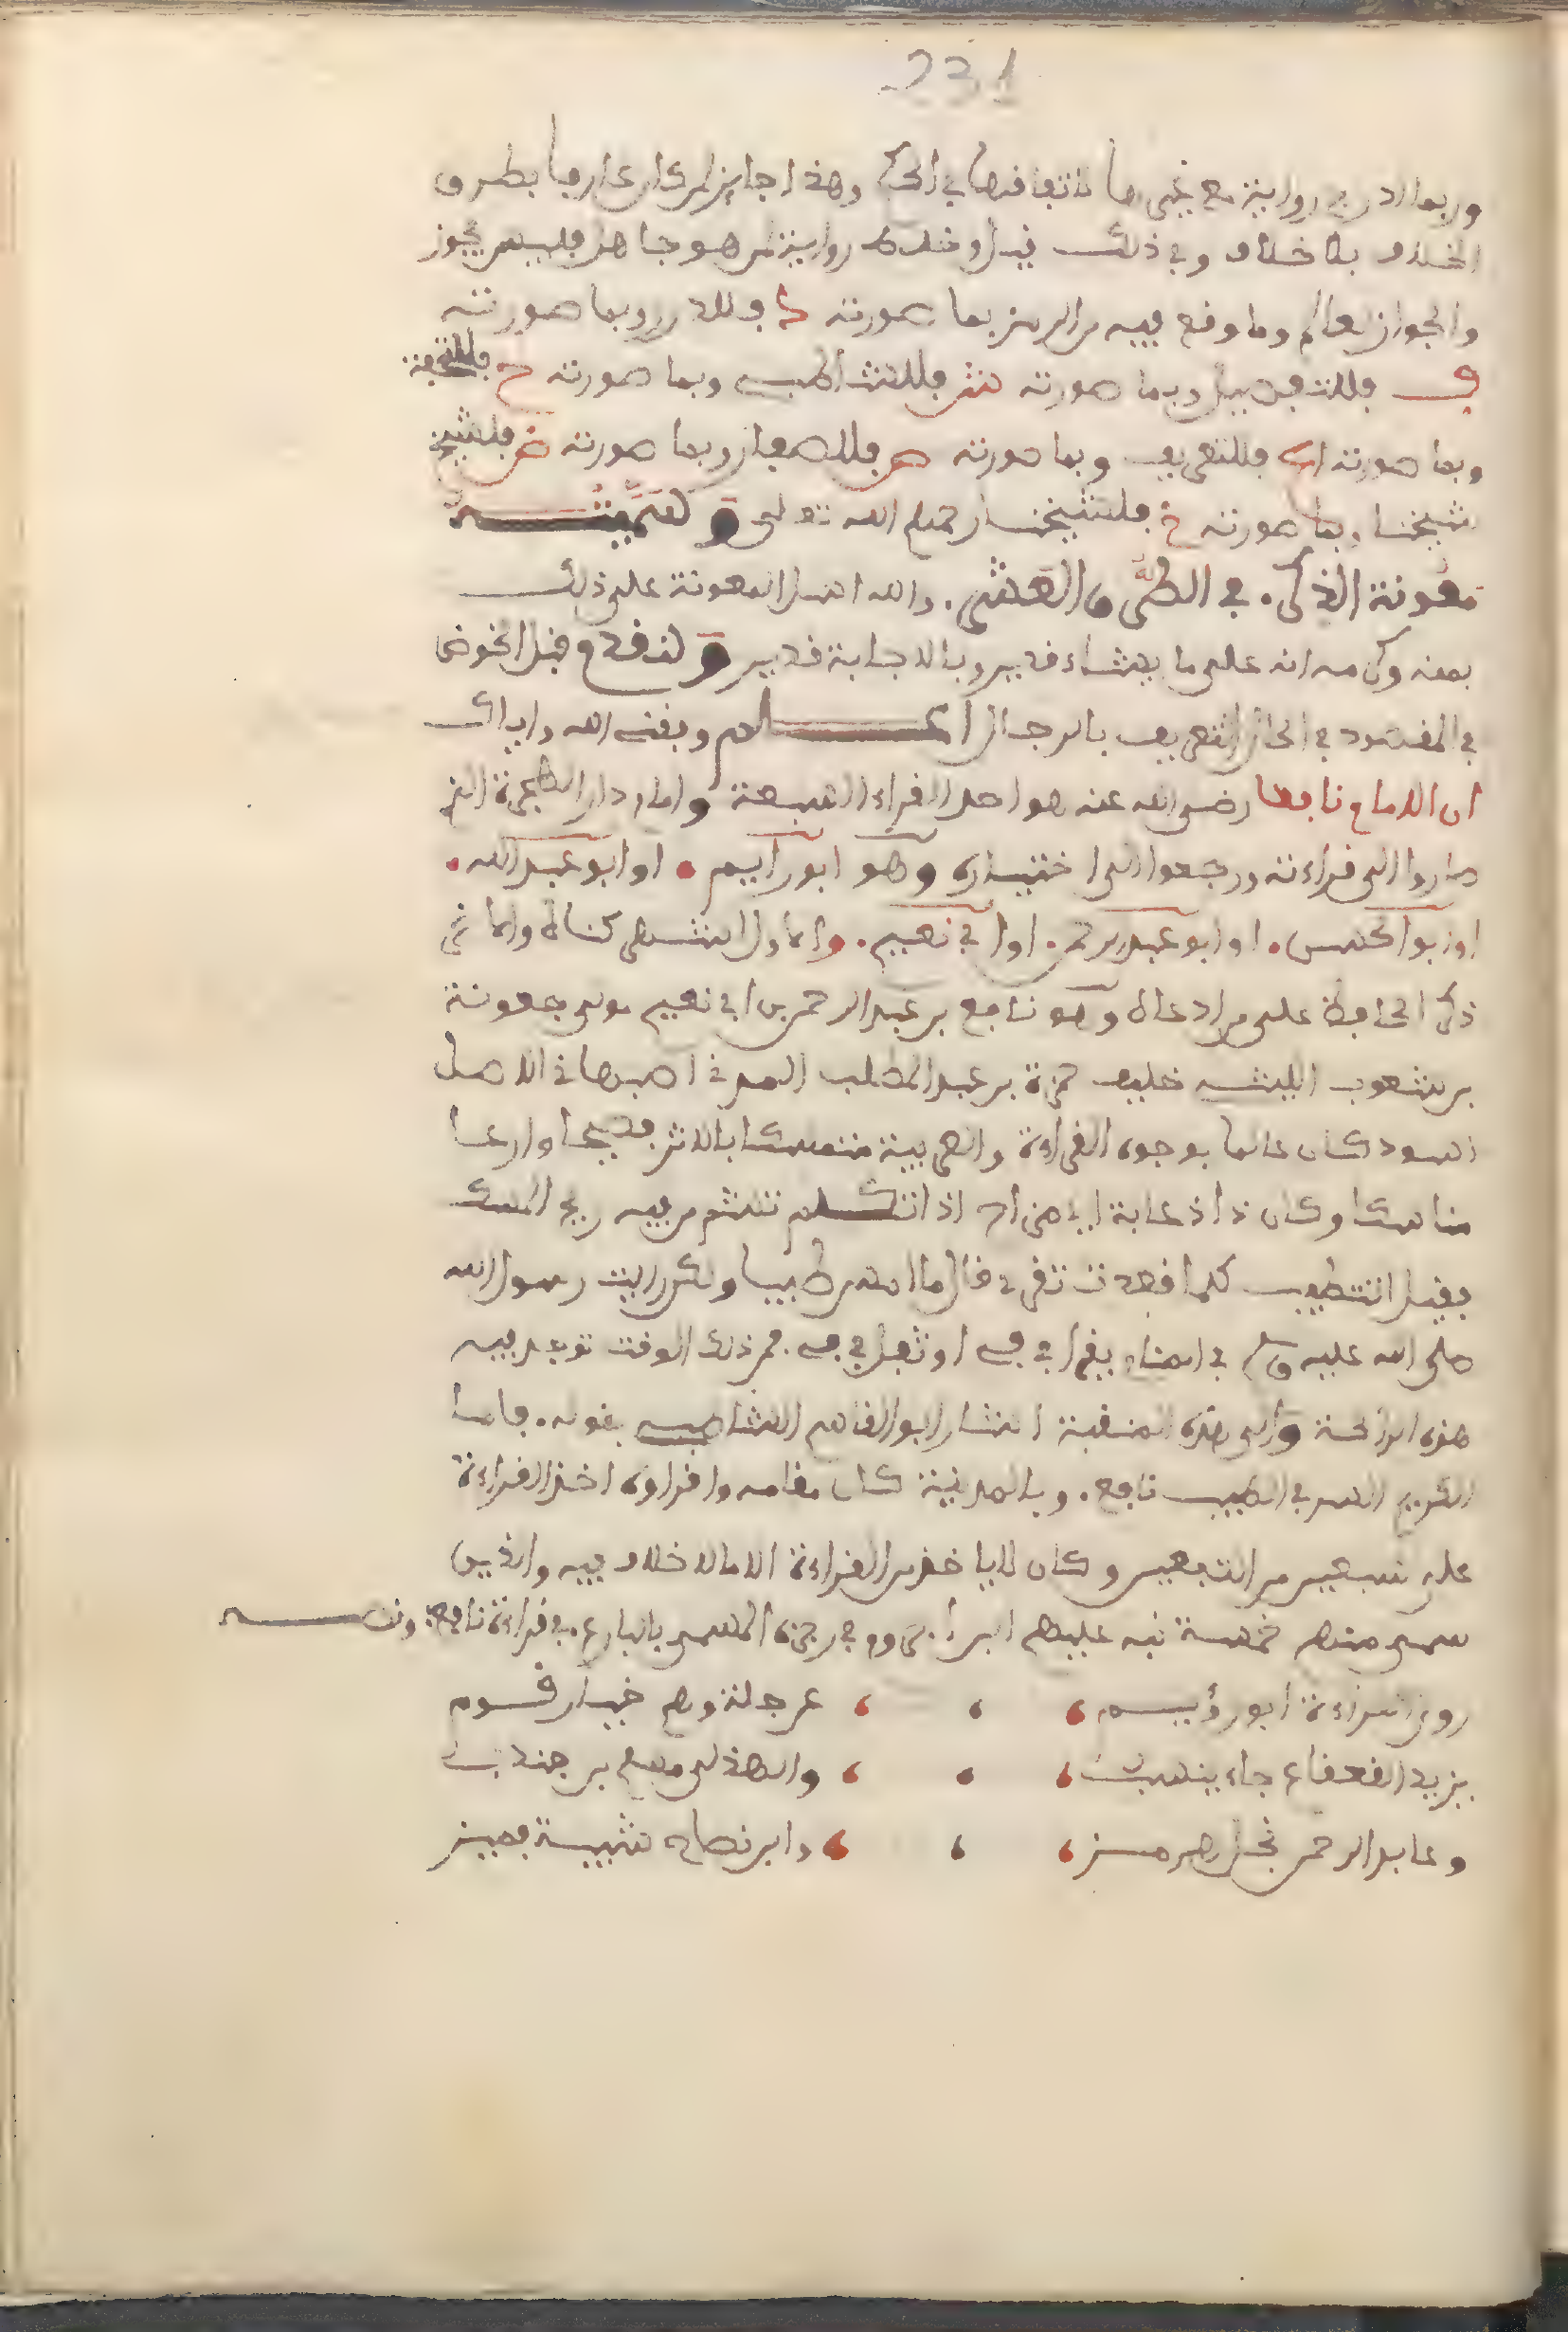 231
وربما ادرج رواية مع غيرها لاتفاقهما في الحكم وهذا جايز لمن كان عارفا بطرق
الخلاف بلا خلاف وفي ذلك قيل وخلط رواية من هو جاهل فليس يجوز
والجواز لعالم وما وقع فيه من الرمز بما صورته د فللدرر وبما صورته
ف فللتفصيل وبما صورته ش فللشاطبي وبما صورته ح فللتحفة
وبما صورته فللتعريف وبما صورته ص فللصفار وبما صورته ض فلشيخ
شيخنا وبما صورته خ فلشيخنا رحمهم الله تعلى وسميته
معونة الذكر. في الطرق العشر. والله اسئل المعونة على ذلك
بمنه وكرمه انه على ما يشاء قدير وبالاجابة جدير ولنقدم قبل الخوض
في المقصود في الحال التعريف بالرجال اعلم وفقني الله واياك
ان الامام نافعا رضي الله عنه هو احد القراء السبعة وامام دار الهجرة الذي
صاروا الى قراءته ورجعوا الى اختياره وهو ابو رويم. او ابو عبد الله.
او ابو الحسن. او ابو عبد الرحمن. او ابي نعيم. والاول اشهر كناه والثاني
ذكره الحافظ على من ادعاه وهو نافع بن عبد الرحمن بن ابي نعيم مولى جعونة
بن شعوب الليثي حليف حمزة بن عبد المطلب المدني اصبهاني الاصل
اسود كان عالما بوجوه القراءة والعربية متمسكا بالاثر فصيحا ورعا
ناسكا وكان ذا دعابة اي مزاح اذا تكلم تشم من فيه ريح المسك
فقيل اتتطيب كلما قعدت تقرئ قال ما امس طيبا ولكن رايت رسول الله
صلى الله عليه وسلم في المنام يقرا في في او تفل في في. فمن ذلك الوقت توجد فيه
هذه الرائحة والى هذه المنقبة اشار ابو القاسم الشاطبي بقوله. فاما
الكريم السر في الطيب نافع. وبالمدينة كان مقامه واقراوه اخذ القراءة
على سبعين من التابعين وكان لا ياخذ من القراءة الا ما لا خلاف فيه والذين
سمى منهم خمسة نبه عليهم ابن اجروم في رجزه المسمى بالبارع. في قراءة نافع. ونصه
روى القراءة ابو رؤيم ، ، ، عن جلة وهم خيار قوم
يزيد القعقاع جاء ينسب ، ، ، والهذلي مسلم بن جندب
وعابد الرحمن نجل هرمز ، ، ، وابن نصاح شيبة فميز